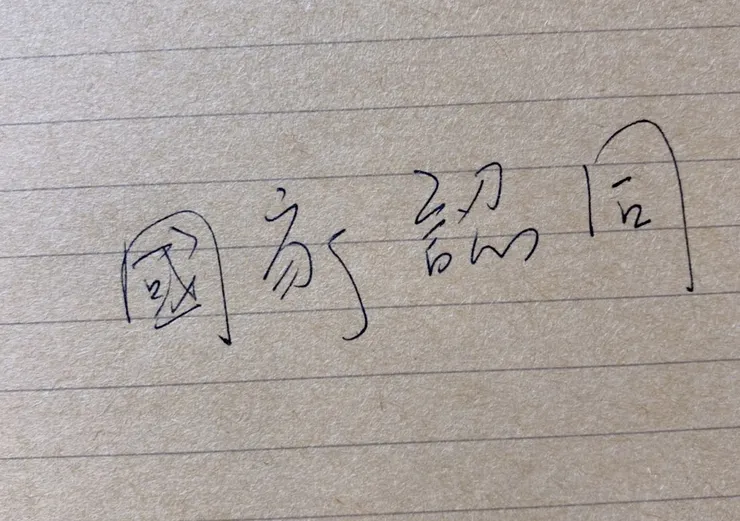 國家認同